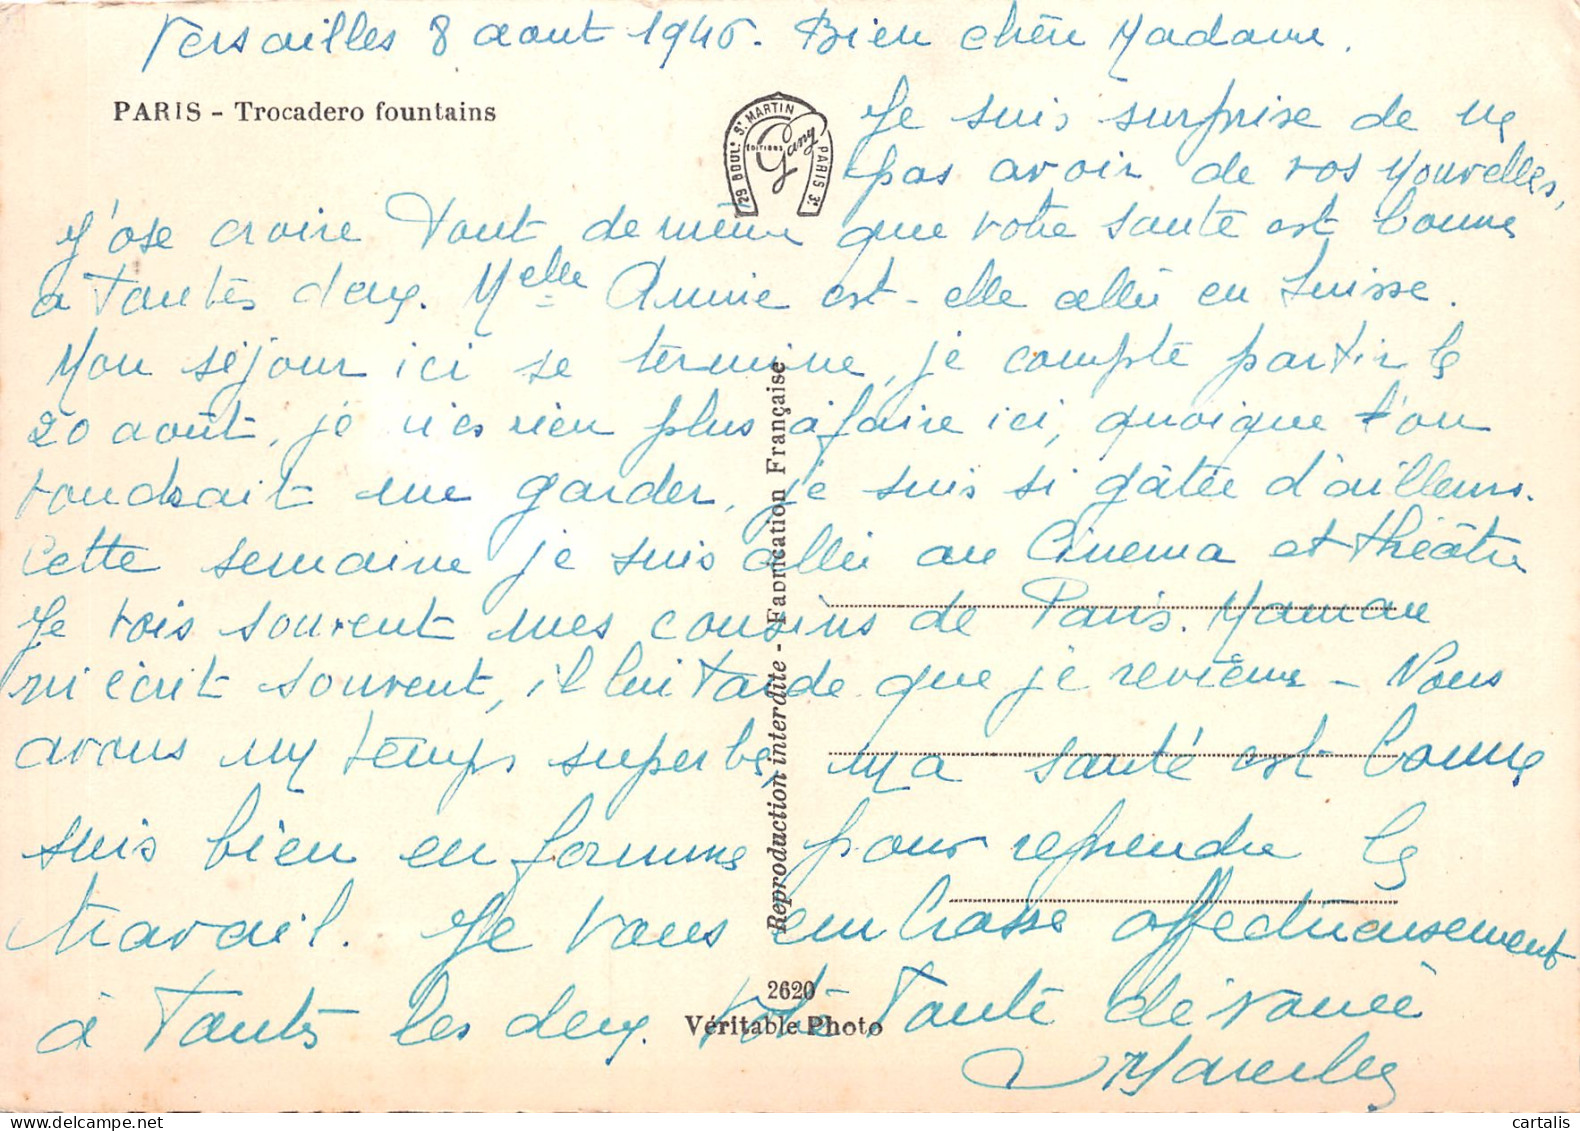 Versailles 8 aout 1946. Bien chère Madame.
PARIS - Trocadero fountains
29 BOULD ST MARTIN PARIS 3e
EDITIONS
Gany
Je suis surprise de ne
pas avoir de vos nouvelles,
J'ose croire tout de même que votre santé est bonne
a toutes deux. Melle Annie est-elle allée en Suisse.
Mon séjour ici se termine, je compte partir le
20 août, je n'es rien plus à faire ici, quoique l'on
voudrait me garder, je suis si gâtée d'ailleurs.
Cette semaine je suis allée au Cinema et théâtre
Je vois souvent mes cousins de Paris. Maman
m'écrit souvent, il lui tarde que je revienne - Nous
avons un temps superbe, ma santé est bonne
suis bien en forme pour reprendre le
travail. Je vous embrasse affectueusement
à toutes les deux. Votre toute dévouée
Reproduction interdite - Fabrication Française
2620
Véritable Photo